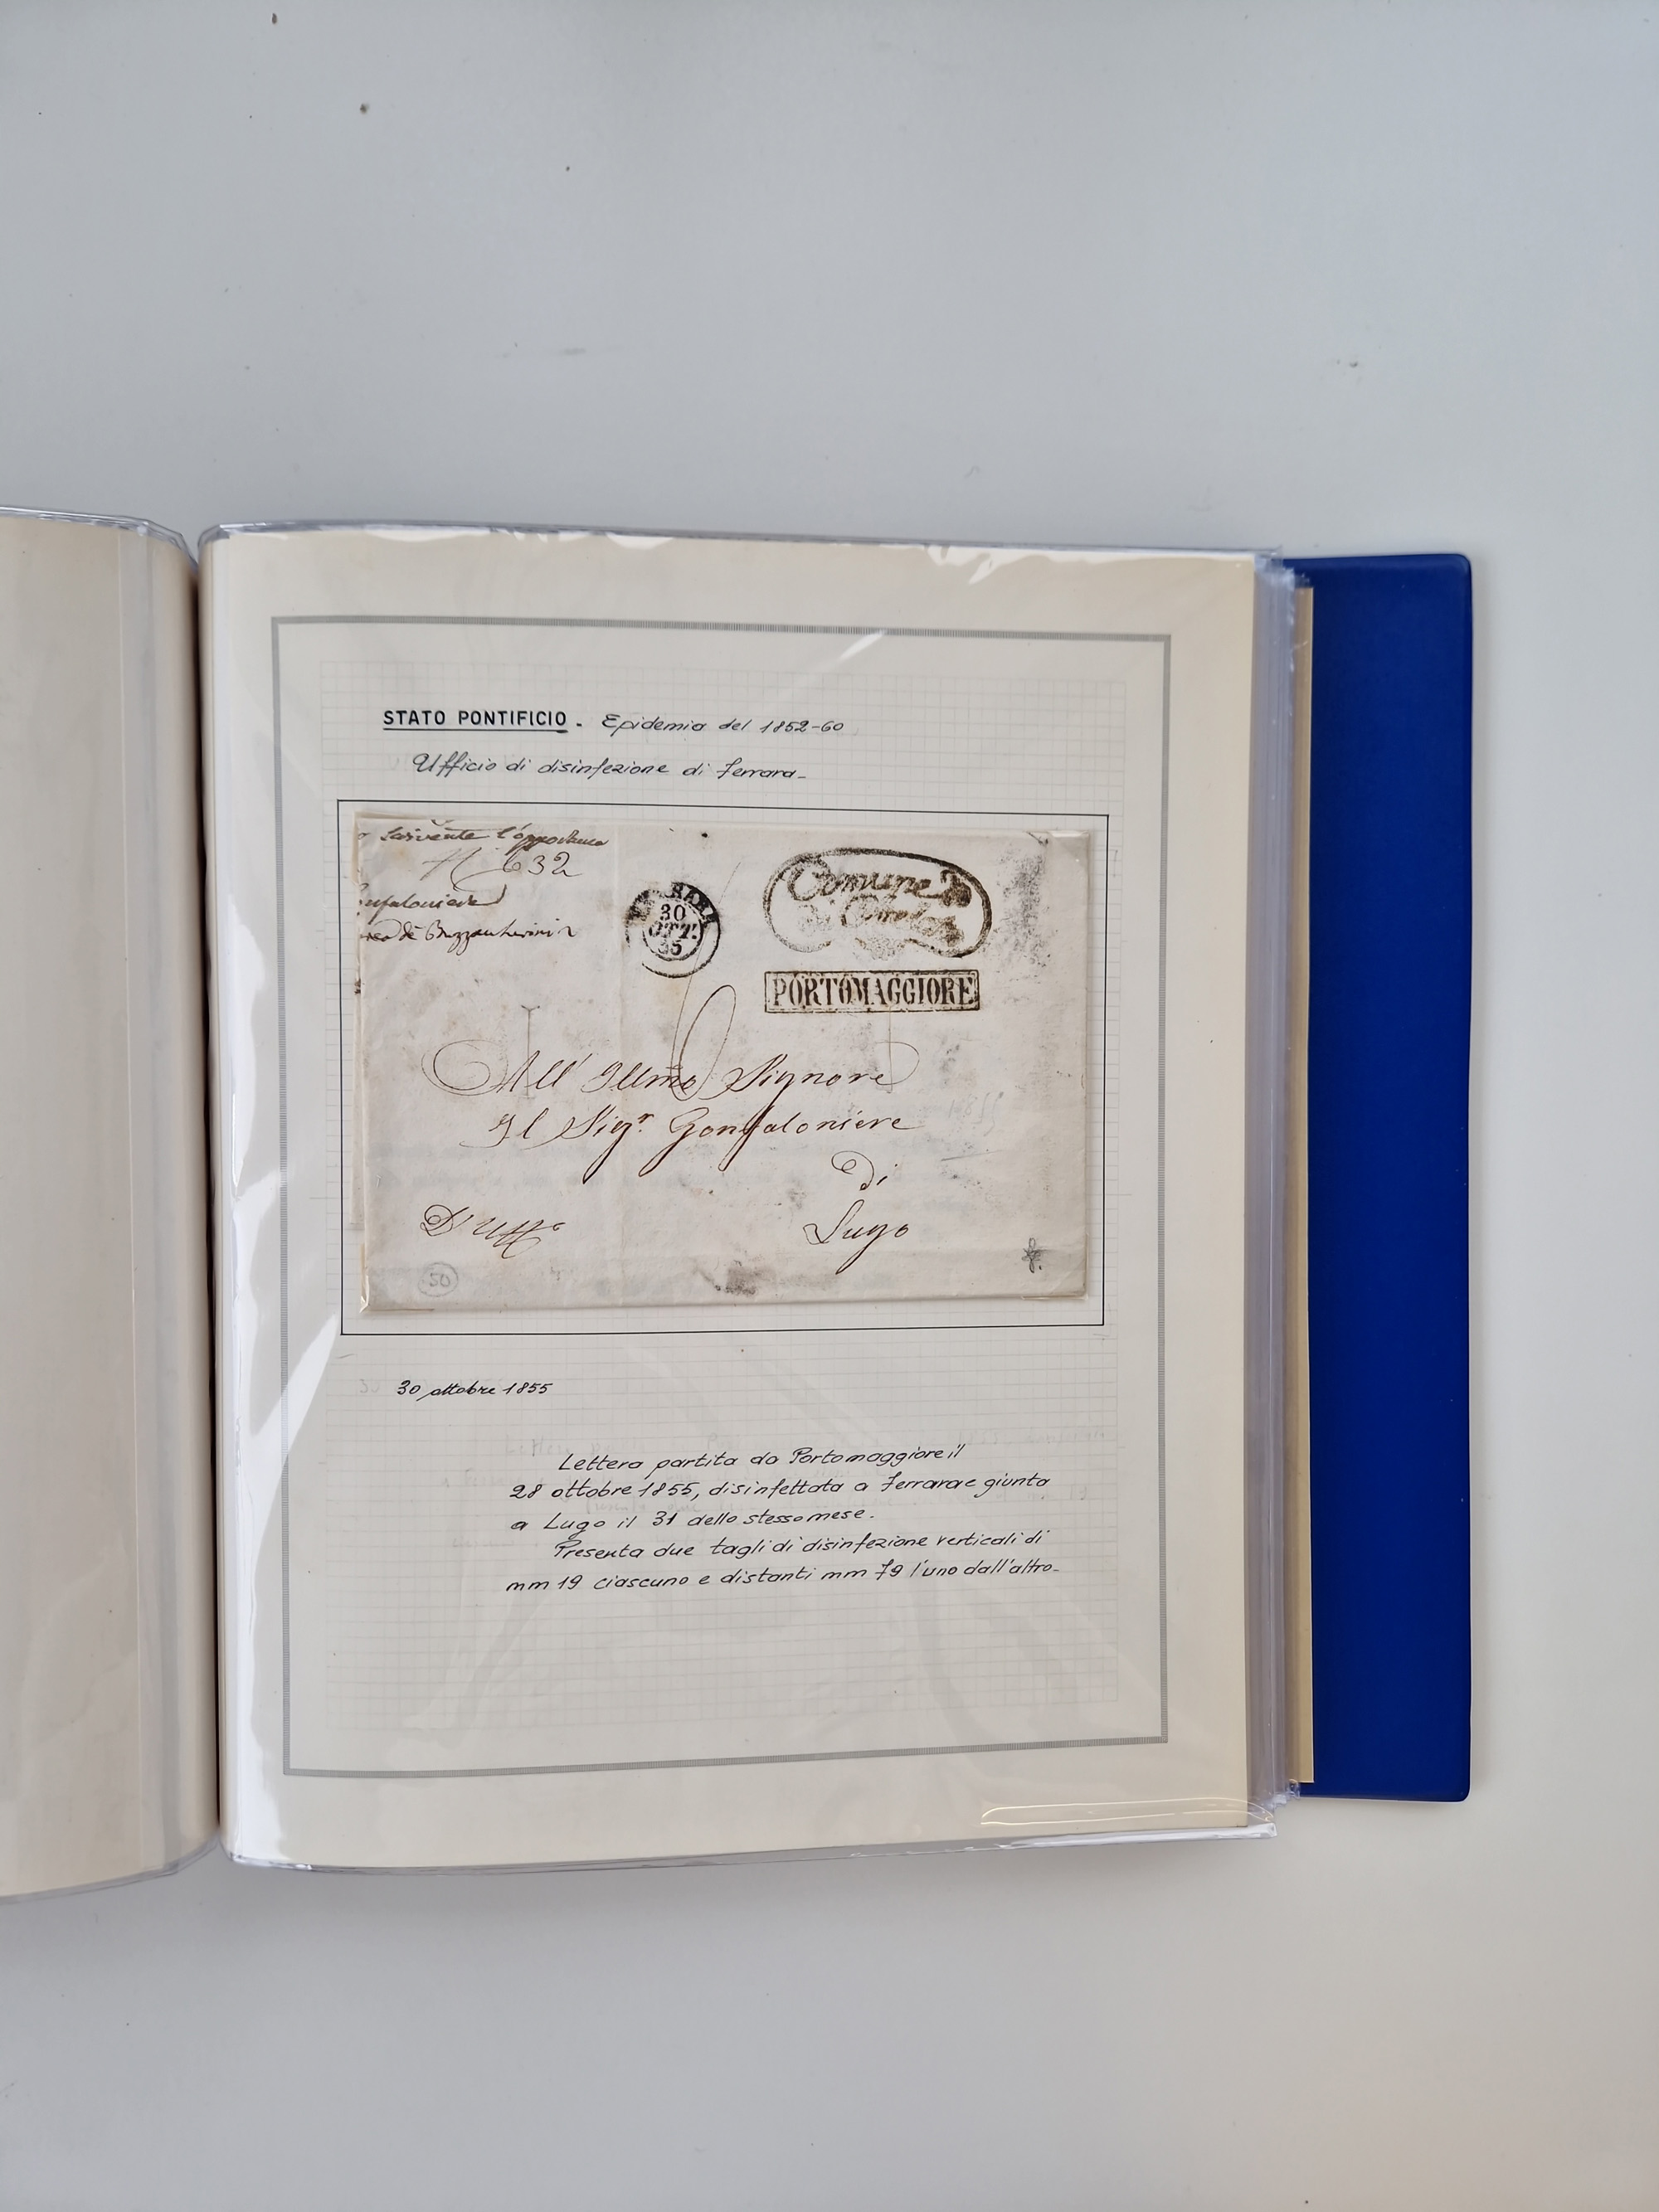 STATO PONTIFICIO - Epidemia del 1852-60
Ufficio di disinfezione di Ferrara-
Servente l'opportuna
632
30
OTT.
55
Comune
di
PORTOMAGGIORE
All' Illmo Signore
Il Sigr. Gonfaloniere
Di
Lugo
D'Uffo
50
30 ottobre 1855
Lettera partita da Portomaggiore il
28 ottobre 1855, disinfettata a Ferrara e giunta
a Lugo il 31 dello stesso mese.
Presenta due tagli di disinfezione verticali di
mm 19 ciascuno e distanti mm 79 l'uno dall'altro-